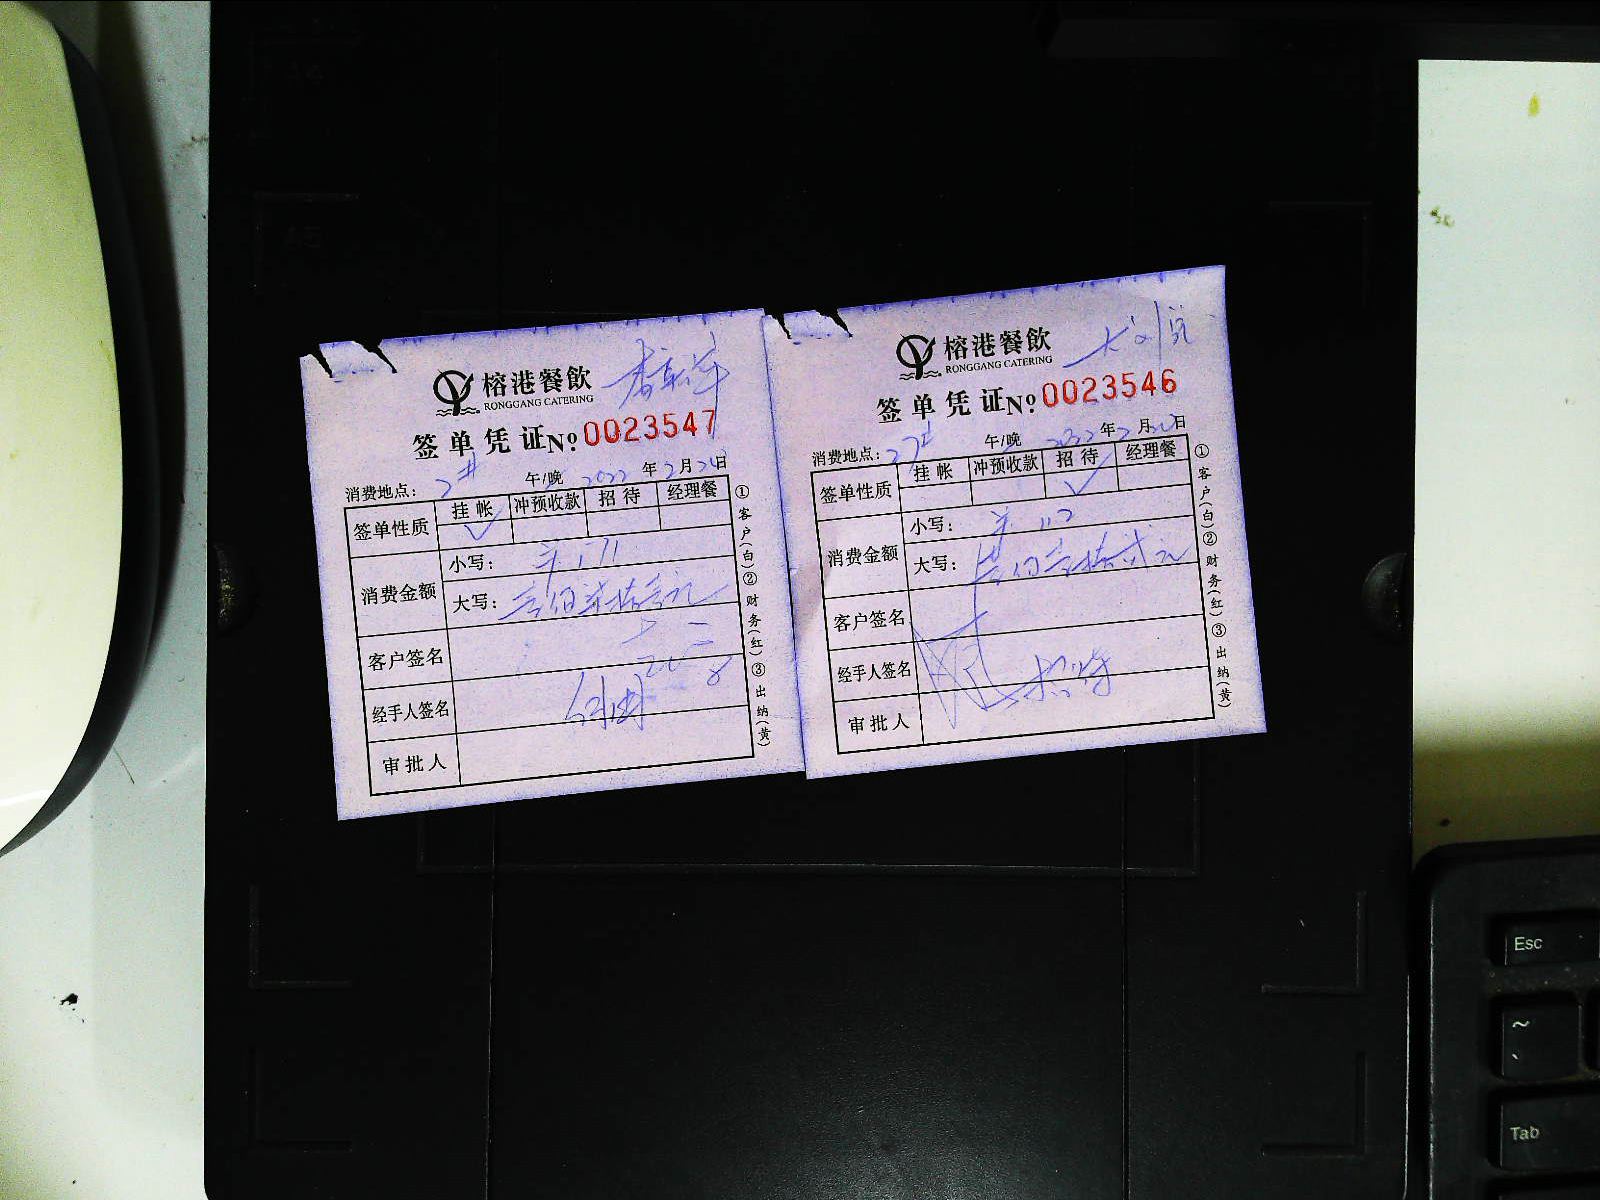 榕港餐飲
RONGGANG CATERING
签单凭证№0023547
消费地点： 2# 午/晚 2022年2月24日
签单性质 挂帐 冲预收款 招待 经理餐
消费金额 小写：
大写：壹佰柒拾壹元
客户签名
经手人签名
审批人
①客户(白)②财务(红)③出纳(黄)
榕港餐飲
RONGGANG CATERING
签单凭证№0023546
消费地点： 27# 午/晚 2022年2月 日
签单性质 挂帐 冲预收款 招待 经理餐
消费金额 小写：
大写：壹佰壹拾贰元
客户签名
经手人签名 招待
审批人
①客户(白)②财务(红)③出纳(黄)
Esc
~
Tab